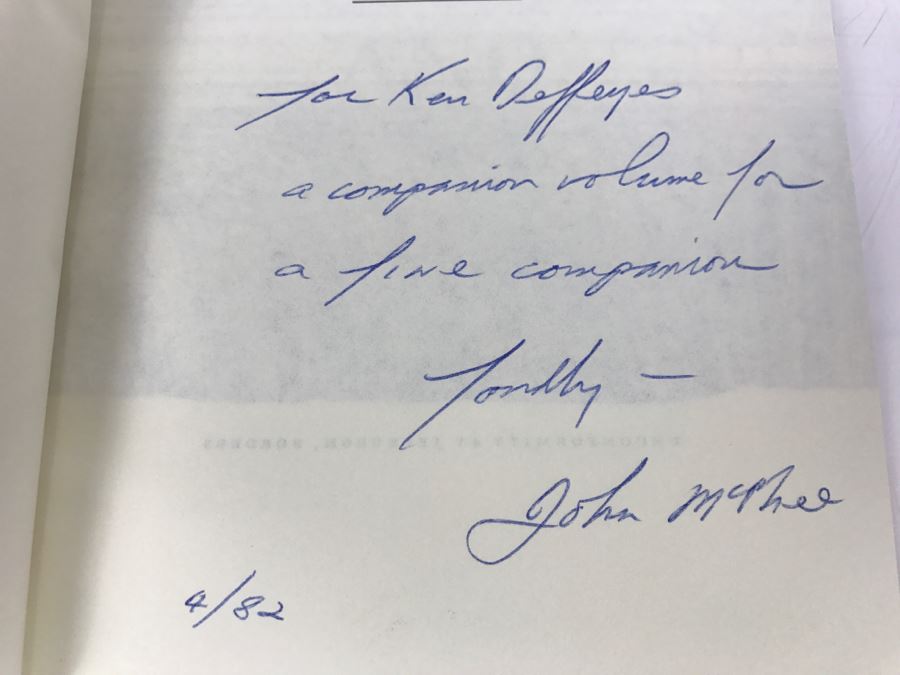 for Ken Deffeyes
a companion volume for
a fine companion
Fondly —
UNCONFORMITY AT JEDBURGH, BORDERS
John McPhee
4/82